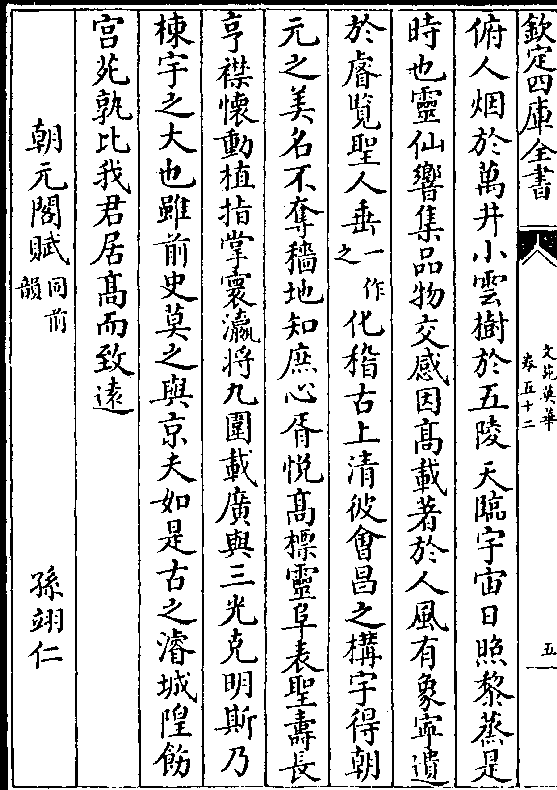 欽定四庫全書
文苑英華
卷五十二
五
俯人烟於萬井小雲樹於五陵天臨宇宙日照黎蒸是
時也靈仙響集品物交感因髙載著於人風有象寧遺
於睿覽聖人垂一作之化稽古上清彼會昌之構宇得朝
元之美名不奪穡地知庶心胥悦髙標靈阜表聖壽長
亨襟懷動植指掌寰瀛将九圍載廣與三光克明斯乃
棟宇之大也雖前史莫之與京夫如是古之濬城隍飭
宫苑孰比我君居髙而致逺
朝元閣賦同前韻
孫翊仁